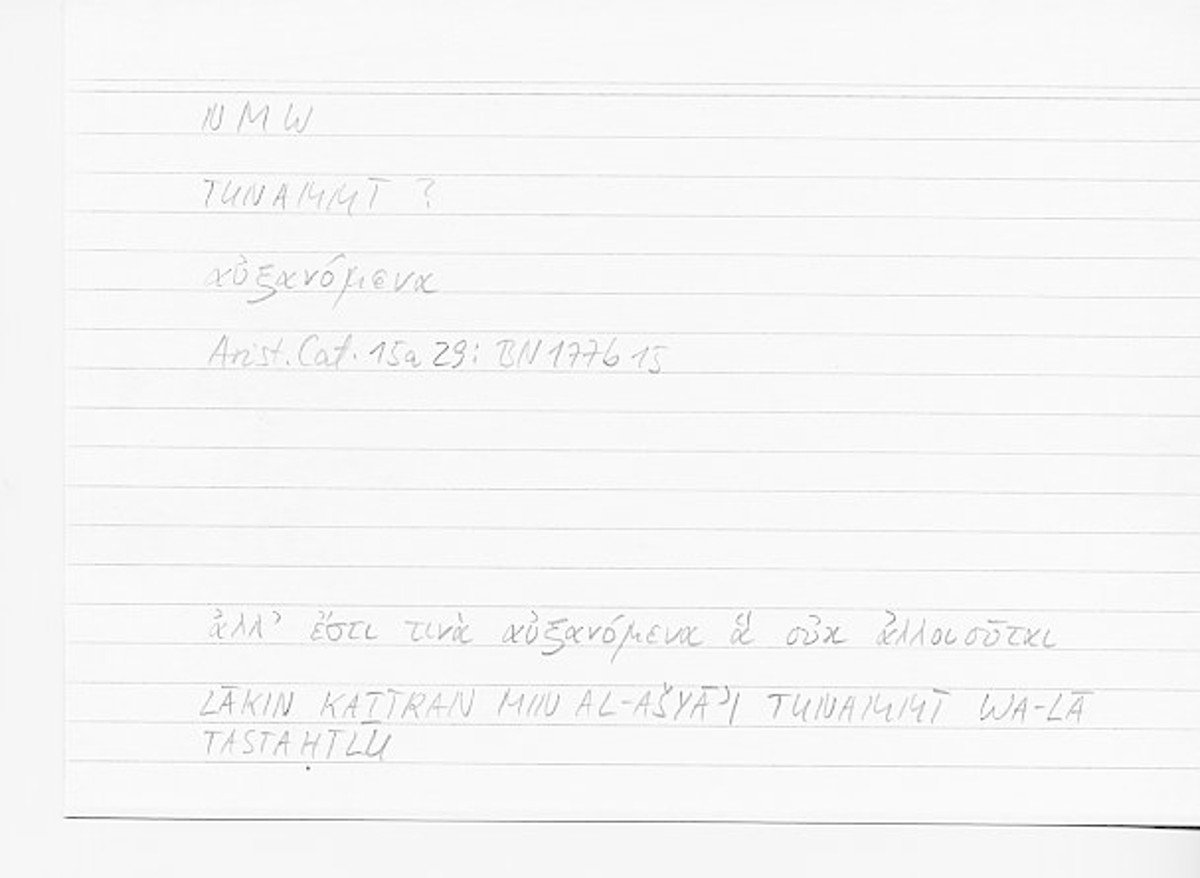 NMW
TUNAMMĪ ?
αὐξανόμενα
Arist. Cat. 15a 29: BN 1776 15
ἀλλ' ἔστι τινὰ αὐξανόμενα ἃ οὐκ ἀλλοιοῦται
LĀKIN KAṮĪRAN MIN AL-AŠYĀʾI TUNAMMĪ WA-LĀ
TASTAḤĪLU